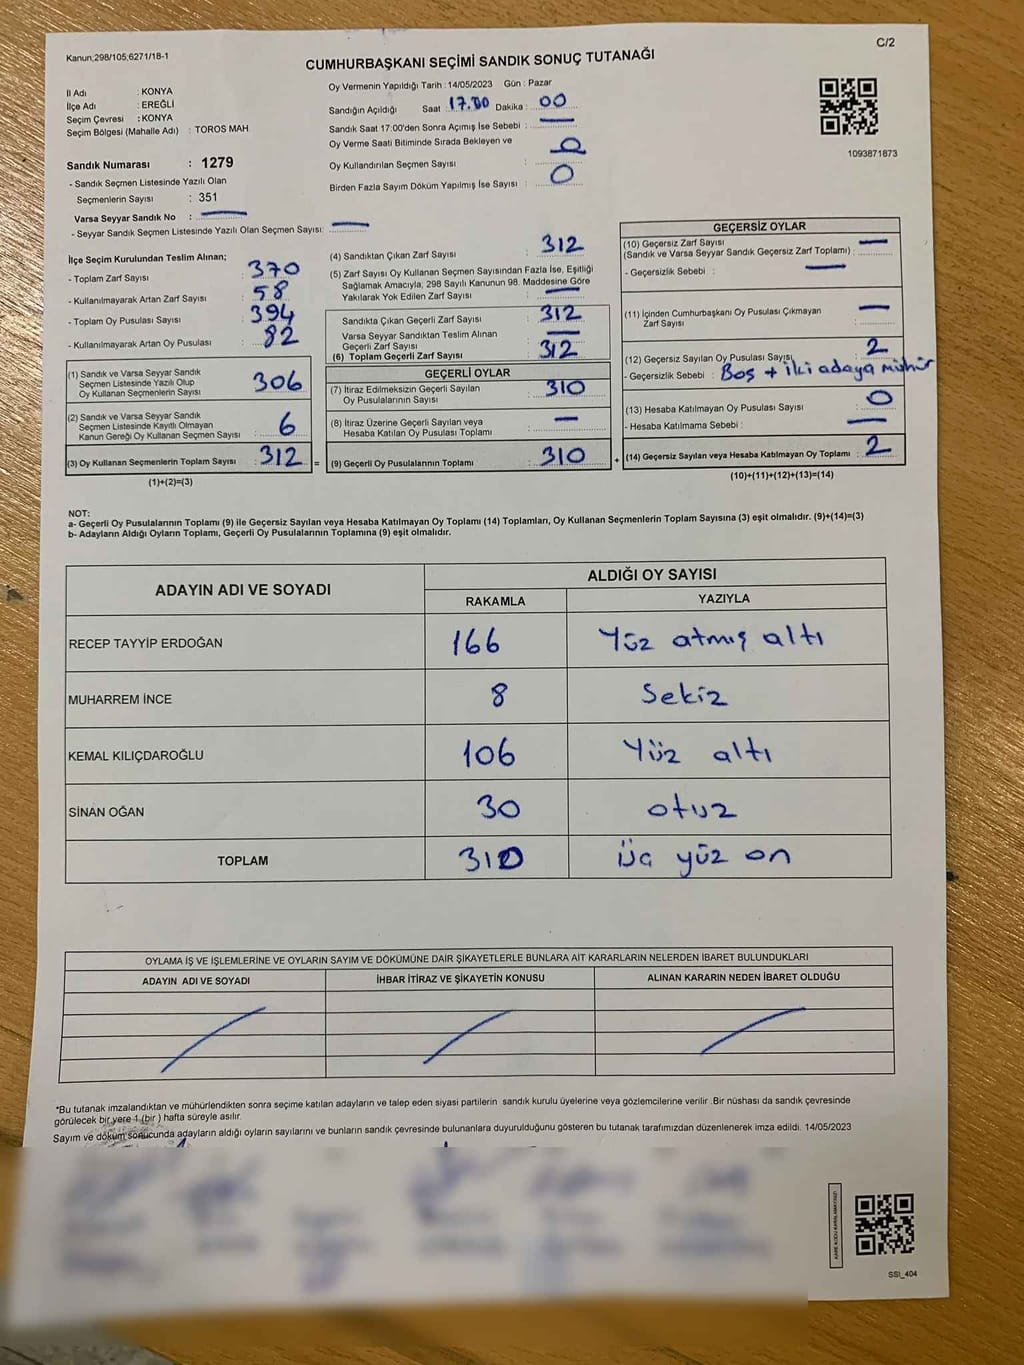 Kanun;298/105;6271/18-1
C/2
CUMHURBAŞKANI SEÇİMİ SANDIK SONUÇ TUTANAĞI
İl Adı : KONYA
İlçe Adı : EREĞLİ
Seçim Çevresi : KONYA
Seçim Bölgesi (Mahalle Adı) : TOROS MAH
Sandık Numarası : 1279
- Sandık Seçmen Listesinde Yazılı Olan
Seçmenlerin Sayısı : 351
Varsa Seyyar Sandık No : —
- Seyyar Sandık Seçmen Listesinde Yazılı Olan Seçmen Sayısı: —
Oy Vermenin Yapıldığı Tarih : 14/05/2023 Gün : Pazar
Sandığın Açıldığı Saat 17.00 Dakika : 00
Sandık Saat 17:00'den Sonra Açımış İse Sebebi : —
Oy Verme Saati Bitiminde Sırada Bekleyen ve
Oy Kullandırılan Seçmen Sayısı :
Birden Fazla Sayım Döküm Yapılmış İse Sayısı : 0
1093871873
İlçe Seçim Kurulundan Teslim Alınan;
- Toplam Zarf Sayısı : 370
- Kullanılmayarak Artan Zarf Sayısı : 58
- Toplam Oy Pusulası Sayısı : 394
- Kullanılmayarak Artan Oy Pusulası : 82
(1) Sandık ve Varsa Seyyar Sandık
Seçmen Listesinde Yazılı Olup
Oy Kullanan Seçmenlerin Sayısı : 306
(2) Sandık ve Varsa Seyyar Sandık
Seçmen Listesinde Kayıtlı Olmayan
Kanun Gereği Oy Kullanan Seçmen Sayısı : 6
(3) Oy Kullanan Seçmenlerin Toplam Sayısı : 312 =
(1)+(2)=(3)
(4) Sandıktan Çıkan Zarf Sayısı : 312
(5) Zarf Sayısı Oy Kullanan Seçmen Sayısından Fazla İse, Eşitliği
Sağlamak Amacıyla, 298 Sayılı Kanunun 98. Maddesine Göre
Yakılarak Yok Edilen Zarf Sayısı : —
Sandıkta Çıkan Geçerli Zarf Sayısı : 312
Varsa Seyyar Sandıktan Teslim Alınan
Geçerli Zarf Sayısı : —
(6) Toplam Geçerli Zarf Sayısı : 312
GEÇERLİ OYLAR
(7) İtiraz Edilmeksizin Geçerli Sayılan
Oy Pusulalarının Sayısı : 310
(8) İtiraz Üzerine Geçerli Sayılan veya
Hesaba Katılan Oy Pusulası Toplamı : —
(9) Geçerli Oy Pusulalarının Toplamı : 310 +
GEÇERSİZ OYLAR
(10) Geçersiz Zarf Sayısı : —
(Sandık ve Varsa Seyyar Sandık Geçersiz Zarf Toplamı)
- Geçersizlik Sebebi : —
(11) İçinden Cumhurbaşkanı Oy Pusulası Çıkmayan
Zarf Sayısı : —
(12) Geçersiz Sayılan Oy Pusulası Sayısı : 2
- Geçersizlik Sebebi : Boş + iki adaya mühür
(13) Hesaba Katılmayan Oy Pusulası Sayısı : 0
- Hesaba Katılmama Sebebi : —
(14) Geçersiz Sayılan veya Hesaba Katılmayan Oy Toplamı : 2
(10)+(11)+(12)+(13)=(14)
NOT:
a- Geçerli Oy Pusulalarının Toplamı (9) ile Geçersiz Sayılan veya Hesaba Katılmayan Oy Toplamı (14) Toplamları, Oy Kullanan Seçmenlerin Toplam Sayısına (3) eşit olmalıdır. (9)+(14)=(3)
b- Adayların Aldığı Oyların Toplamı, Geçerli Oy Pusulalarının Toplamına (9) eşit olmalıdır.
ADAYIN ADI VE SOYADI
ALDIĞI OY SAYISI
RAKAMLA YAZIYLA
RECEP TAYYİP ERDOĞAN 166 Yüz atmış altı
MUHARREM İNCE 8 Sekiz
KEMAL KILIÇDAROĞLU 106 Yüz altı
SİNAN OĞAN 30 otuz
TOPLAM 310 Üç yüz on
OYLAMA İŞ VE İŞLEMLERİNE VE OYLARIN SAYIM VE DÖKÜMÜNE DAİR ŞİKAYETLERLE BUNLARA AİT KARARLARIN NELERDEN İBARET BULUNDUKLARI
ADAYIN ADI VE SOYADI İHBAR İTİRAZ VE ŞİKAYETİN KONUSU ALINAN KARARIN NEDEN İBARET OLDUĞU
*Bu tutanak imzalandıktan ve mühürlendikten sonra seçime katılan adayların ve talep eden siyasi partilerin sandık kurulu üyelerine veya gözlemcilerine verilir .Bir nüshası da sandık çevresinde
görülecek bir yere 1 (bir ) hafta süreyle asılır.
Sayım ve döküm sonucunda adayların aldığı oyların sayılarını ve bunların sandık çevresinde bulunanlara duyurulduğunu gösteren bu tutanak tarafımızdan düzenlenerek imza edildi. 14/05/2023
KARE KODU KARALAMAYINIZ!
SSI_404